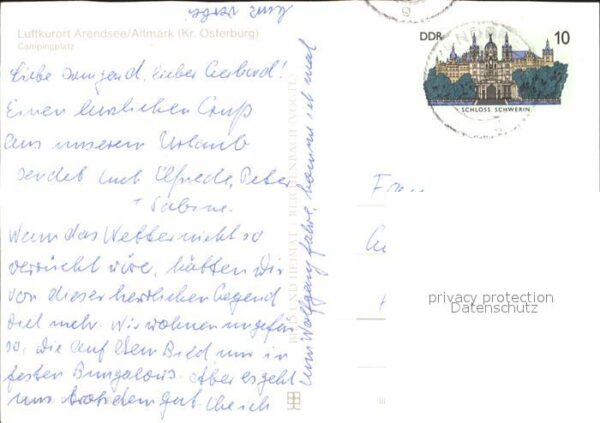 Luftkurort Arendsee/Altmark (Kr. Osterburg)
Campingplatz
Liebe Irmgard, lieber Gerhard!
Einen herzlichen Gruß
aus unserem Urlaub
sendet euch Elfriede, Peter
+ Sabine.
Wenn das Wetter nicht so
verrückt wäre, hätten wir
von dieser herrlichen Gegend
viel mehr. Wir wohnen ungefähr
so, wie auf dem Bild nur in
festen Bungalows. Aber es geht
uns trotzdem gut. Ehe ich
zum Wolfgang fahre, komme ich mal
kurz vorbei
BILD UND HEIMAT REICHENBACH (VOGTL)
DDR 10
SCHLOSS SCHWERIN
privacy protection
Datenschutz